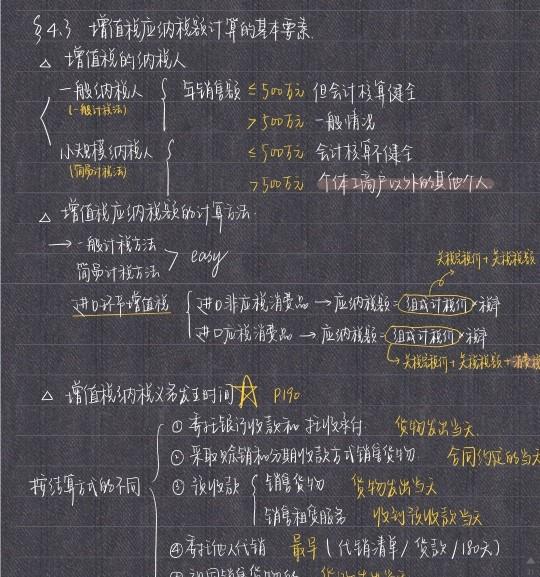 §4.3 增值税应纳税额计算的基本要素.
△ 增值税的纳税人
一般纳税人 年销售额 ≤500万元 但会计核算健全
(一般计税法)
>500万元 一般情况
小规模纳税人 ≤500万元 会计核算不健全
(简易计税法)
>500万元 个体工商户以外的其他个人
△ 增值税应纳税额的计算方法.
→一般计税方法
简易计税方法 > easy
关税完税价+关税税额
进口环节增值税 进口非应税消费品→应纳税额=组成计税价×税率
进口应税消费品→应纳税额=组成计税价×税率
→关税完税价+关税税额+消费税
△ 增值税纳税义务发生时间 ☆ P190
按结算方式的不同
①委托银行收款和托收承付 货物发出当天.
②采取赊销和分期收款方式销售货物. 合同约定的当天
③预收款 销售货物 货物发出当天
销售租赁服务 收到预收款当天
④委托他人代销 最早(代销清单/货款/180天)